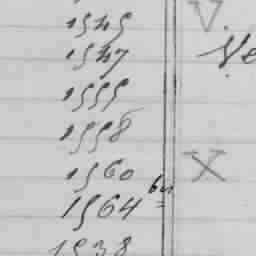 1545 V.
1547 Ve
1555
1558
1560 X
1564 bis
1538